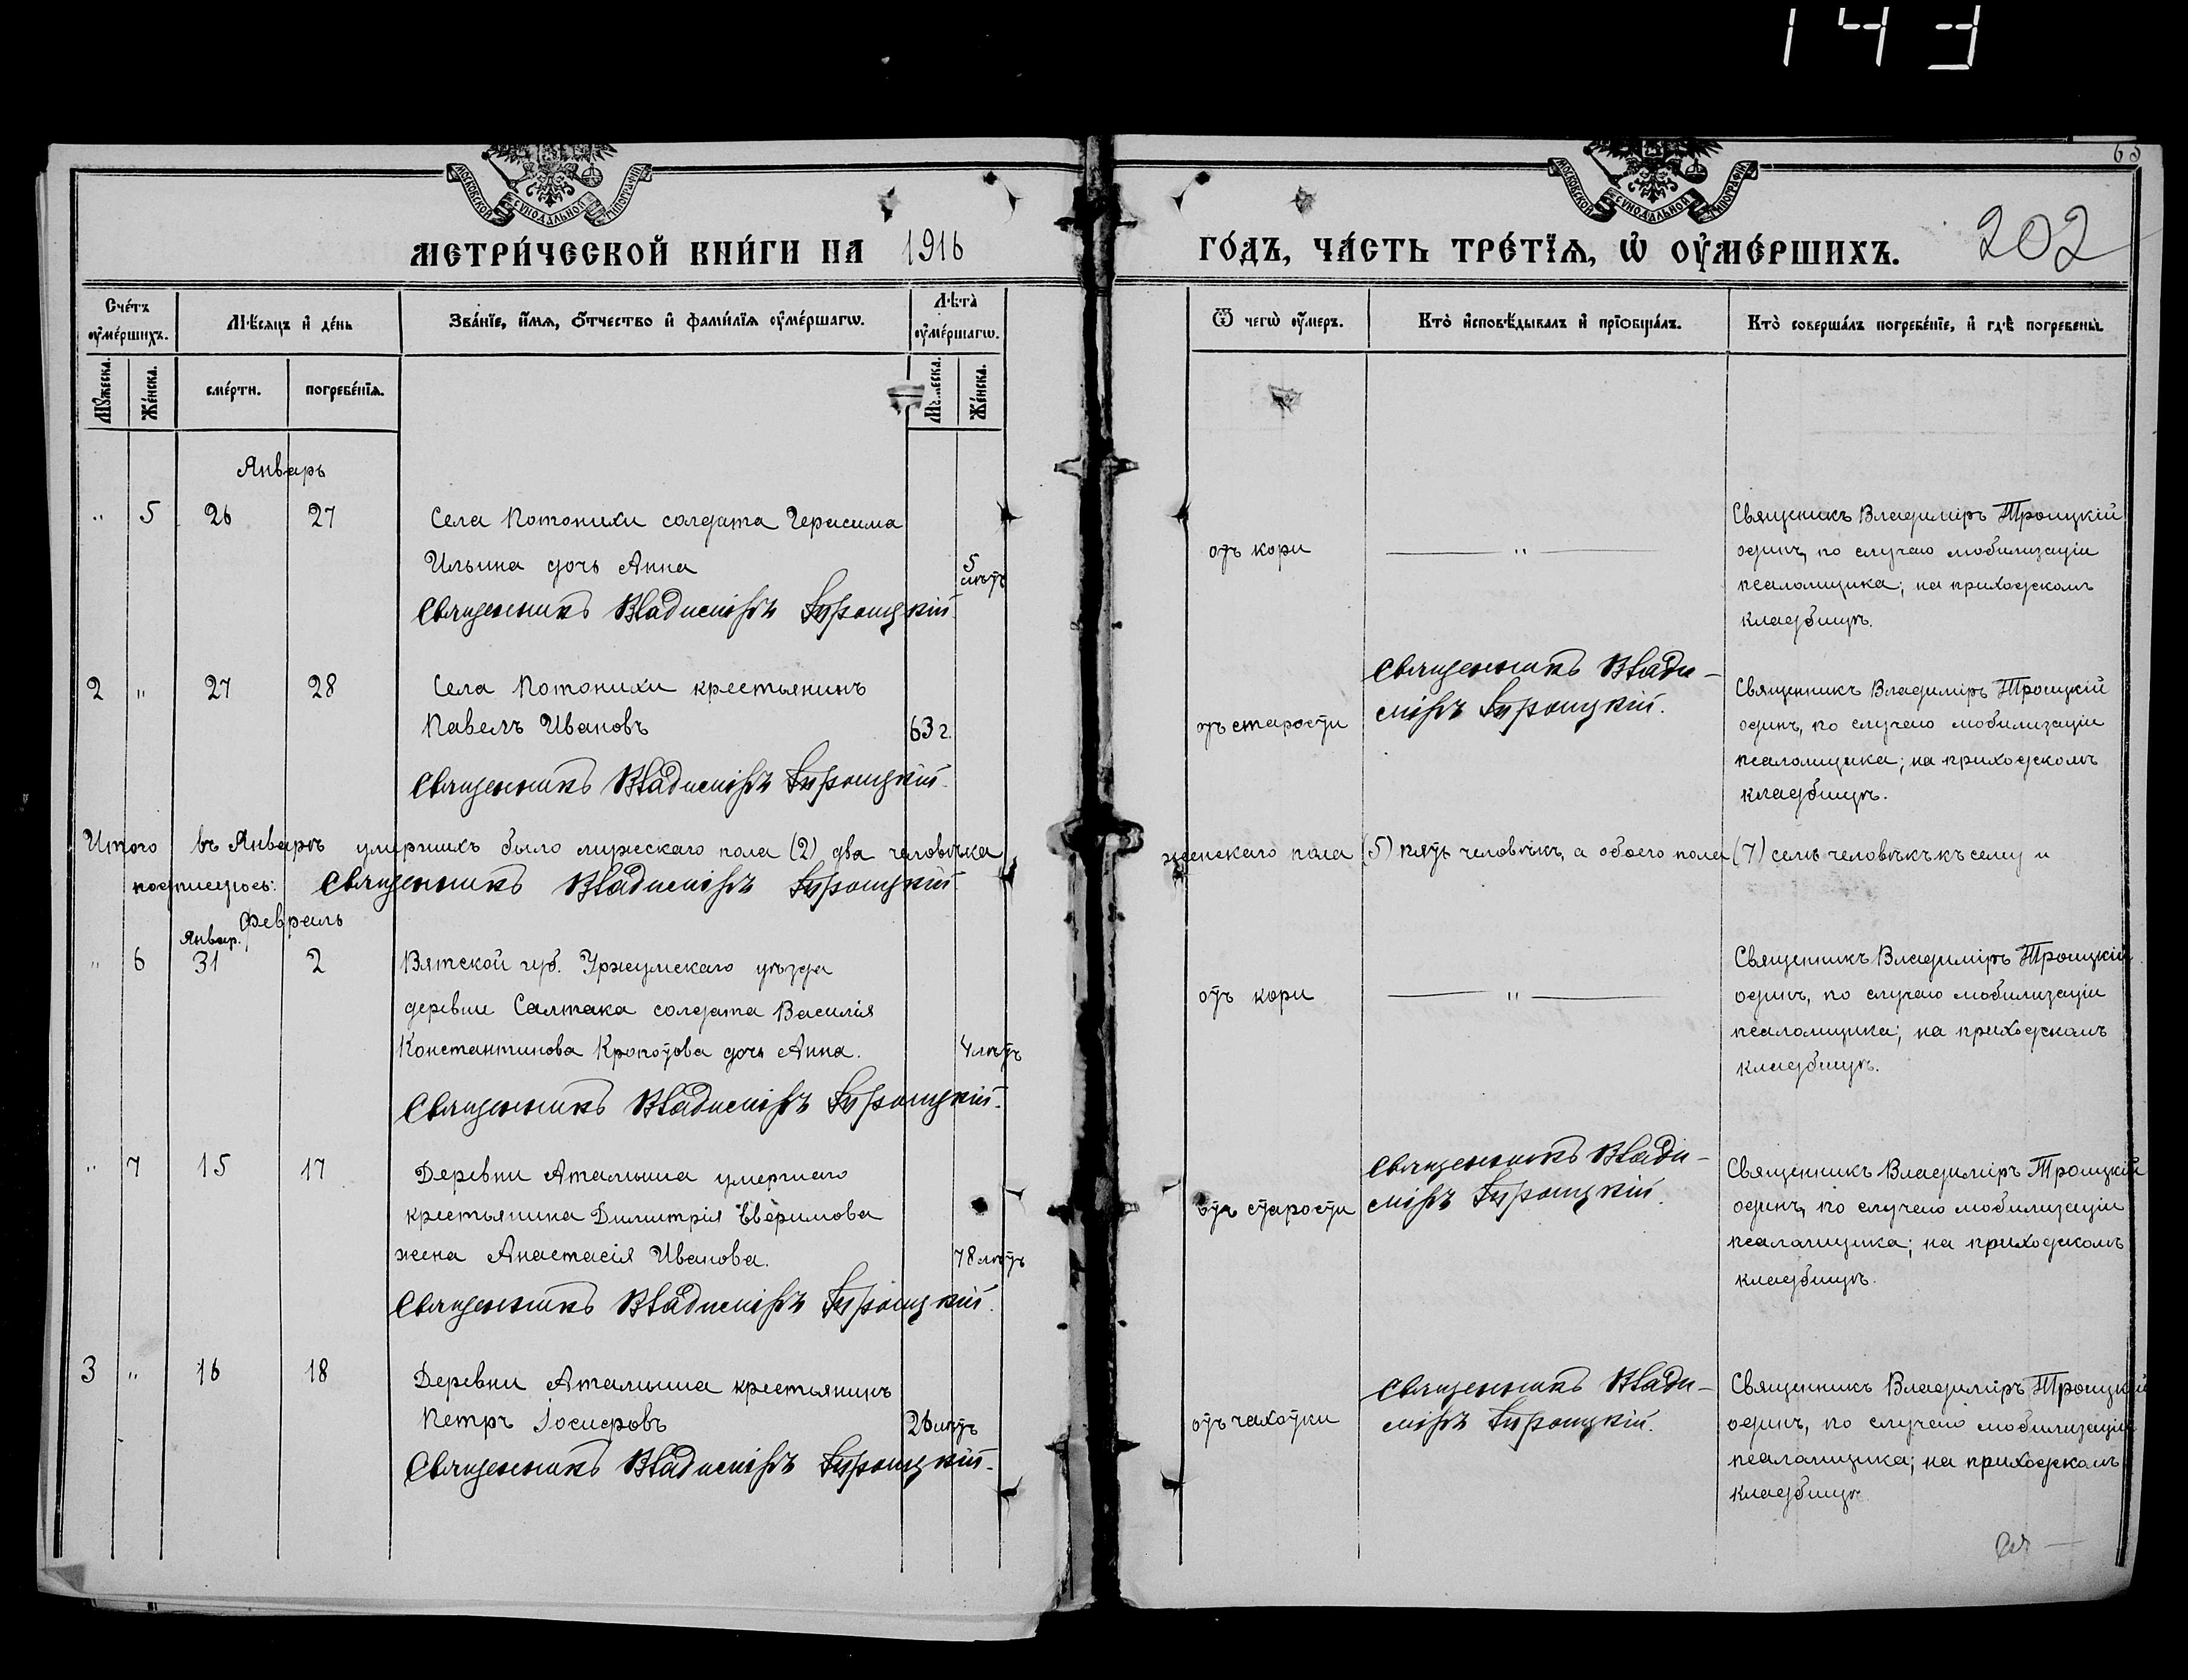 143
65
МОСКОВСКОЙ СѴНОДАЛЬНОЙ ТИПОГРАФІИ
МОСКОВСКОЙ СѴНОДАЛЬНОЙ ТИПОГРАФІИ
МЕТРИ́ЧЕСКОЙ КНИ́ГИ НА 1916 ГО́ДЪ, ЧА́СТЬ ТРЕ́ТЇѦ, Ѡ҆ ОУ҆МЕ́РШИХЪ. 202
Сче́тъ оу҆ме́ршихъ.
Мѣ́сѧцъ и҆ де́нь
Зва́нїе, и҆́мѧ, ѻ҆́тчество и҆ фами́лїѧ оу҆ме́ршагѡ.
Лѣ́та̀ оу҆ме́ршагѡ.
Ѿ чегѡ̀ оу҆́меръ.
Кто̀ и҆сповѣ́дывалъ и҆ прїѡбща́лъ.
Кто̀ соверша́лъ погребе́нїе, и҆ гдѣ̀ погребены̀.
Мꙋ́жеска.
Же́нска.
сме́рти.
погребе́нїѧ.
Мꙋ́жеска.
Же́нска.
Январь
" 5 26 27 Села Потонихи солдата Герасима
Ильина дочь Анна 5 лѣтъ
Священникъ Владиміръ Троицкій.
отъ кори
"
Священникъ Владиміръ Троицкій
одинъ, по случаю мобилизаціи
псаломщика; на приходскомъ
кладбищѣ.
2 " 27 28 Села Потонихи крестьянинъ
Павелъ Ивановъ 63 г.
Священникъ Владиміръ Троицкій.
отъ старости
Священникъ Влади-
міръ Троицкій.
Священникъ Владиміръ Троицкій
одинъ, по случаю мобилизаціи
псаломщика; на приходскомъ
кладбищѣ.
Итого въ Январѣ умершихъ было мужескаго пола (2) два человѣка женскаго пола (5) пять человѣкъ, а обоего пола (7) семь человѣкъ къ сему и
подписуюсь: Священникъ Владиміръ Троицкій.
Февраль
Январ.
" 6 31 2 Вятской губ. Уржумскаго уѣзда
деревни Салтака солдата Василія
Константинова Кропотова дочь Анна. 4 лѣтъ
Священникъ Владиміръ Троицкій.
отъ кори
"
Священникъ Владиміръ Троицкій
одинъ, по случаю мобилизаціи
псаломщика; на приходскомъ
кладбищѣ.
" 7 15 17 Деревни Аталыша умершаго
крестьянина Димитрія Ефримова
жена Анастасія Иванова. 78 лѣтъ
Священникъ Владиміръ Троицкій.
отъ старости
Священникъ Влади-
міръ Троицкій.
Священникъ Владиміръ Троицкій
одинъ, по случаю мобилизаціи
псаломщика; на приходскомъ
кладбищѣ.
3 " 16 18 Деревни Аталыша крестьянинъ
Петръ Іосифовъ 26 лѣтъ
Священникъ Владиміръ Троицкій.
отъ чахотки
Священникъ Влади-
міръ Троицкій.
Священникъ Владиміръ Троицкій
одинъ, по случаю мобилизаціи
псаломщика; на приходскомъ
кладбищѣ